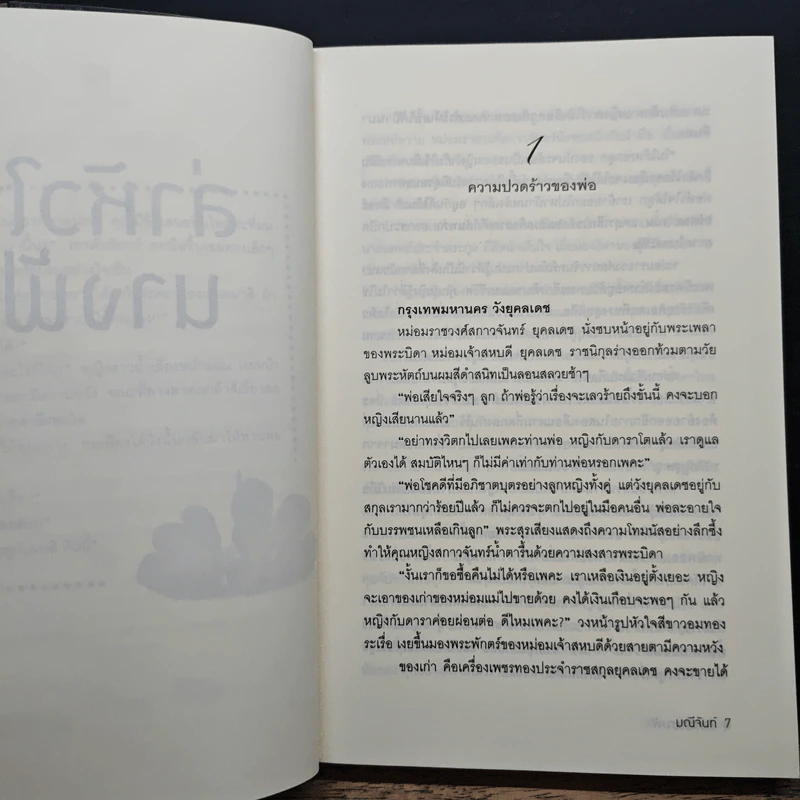 1
ความปวดร้าวของพ่อ
กรุงเทพมหานคร วังยุคลเดช
หม่อมราชวงศ์สกาวจันทร์ ยุคลเดช นั่งซบหน้าอยู่กับพระเพลา
ของพระบิดา หม่อมเจ้าสหบดี ยุคลเดช ราชนิกุลร่างออกท้วมตามวัย
ลูบพระหัตถ์บนผมสีดำสนิทเป็นลอนสลวยช้าๆ
“พ่อเสียใจจริงๆ ลูก ถ้าพ่อรู้ว่าเรื่องจะเลวร้ายถึงขั้นนี้ คงจะบอก
หญิงเสียนานแล้ว”
“อย่าทรงวิตกไปเลยเพคะท่านพ่อ หญิงกับดาราโตแล้ว เราดูแล
ตัวเองได้ สมบัติไหนๆ ก็ไม่มีค่าเท่ากับท่านพ่อหรอกเพคะ”
“พ่อโชคดีที่มีอภิชาตบุตรอย่างลูกหญิงทั้งคู่ แต่วังยุคลเดชอยู่กับ
สกุลเรามากว่าร้อยปีแล้ว ก็ไม่ควรจะตกไปอยู่ในมือคนอื่น พ่อละอายใจ
กับบรรพชนเหลือเกินลูก” พระสุรเสียงแสดงถึงความโทมนัสอย่างลึกซึ้ง
ทำให้คุณหญิงสกาวจันทร์น้ำตารื้นด้วยความสงสารพระบิดา
“งั้นเราก็ขอซื้อคืนไม่ได้หรือเพคะ เราเหลือเงินอยู่ตั้งเยอะ หญิง
จะเอาของเก่าของหม่อมแม่ไปขายด้วย คงได้เงินเกือบจะพอๆ กัน แล้ว
หญิงกับดาราค่อยผ่อนต่อ ดีไหมเพคะ?” วงหน้ารูปหัวใจสีขาวอมทอง
ระเรื่อ เงยขึ้นมองพระพักตร์ของหม่อมเจ้าสหบดีด้วยสายตามีความหวัง
ของเก่า คือเครื่องเพชรทองประจำราชสกุลยุคลเดช คงจะขายได้
มณีจันท์ 7